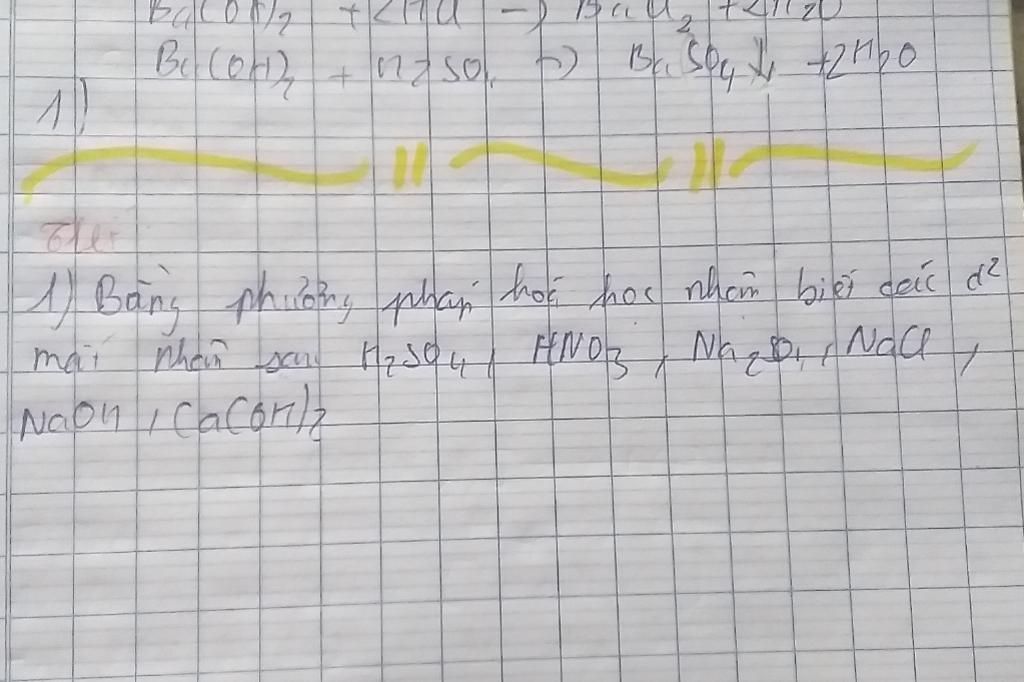 Ba(OH)2 + 2HCl → BaCl2 + 2H2O
Ba(OH)2 + H2SO4 → BaSO4 ↓ + 2H2O
1)
1) Bằng phương pháp hoá học nhận biết các d²
mất nhãn sau H2SO4, HNO3, Na2SO4, NaCl,
NaOH, Ca(OH)2